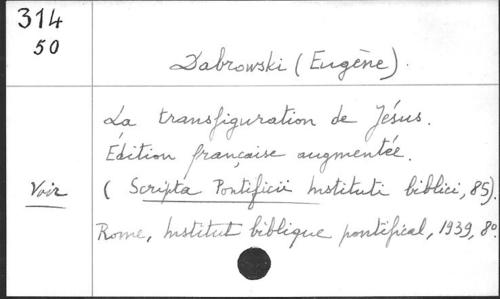 314
50
Dabrowski (Eugène).
La transfiguration de Jésus.
Édition française augmentée.
Voir
( Scripta Pontificii Instituti biblici, 85).
Rome, Institut biblique pontifical, 1939, 8º